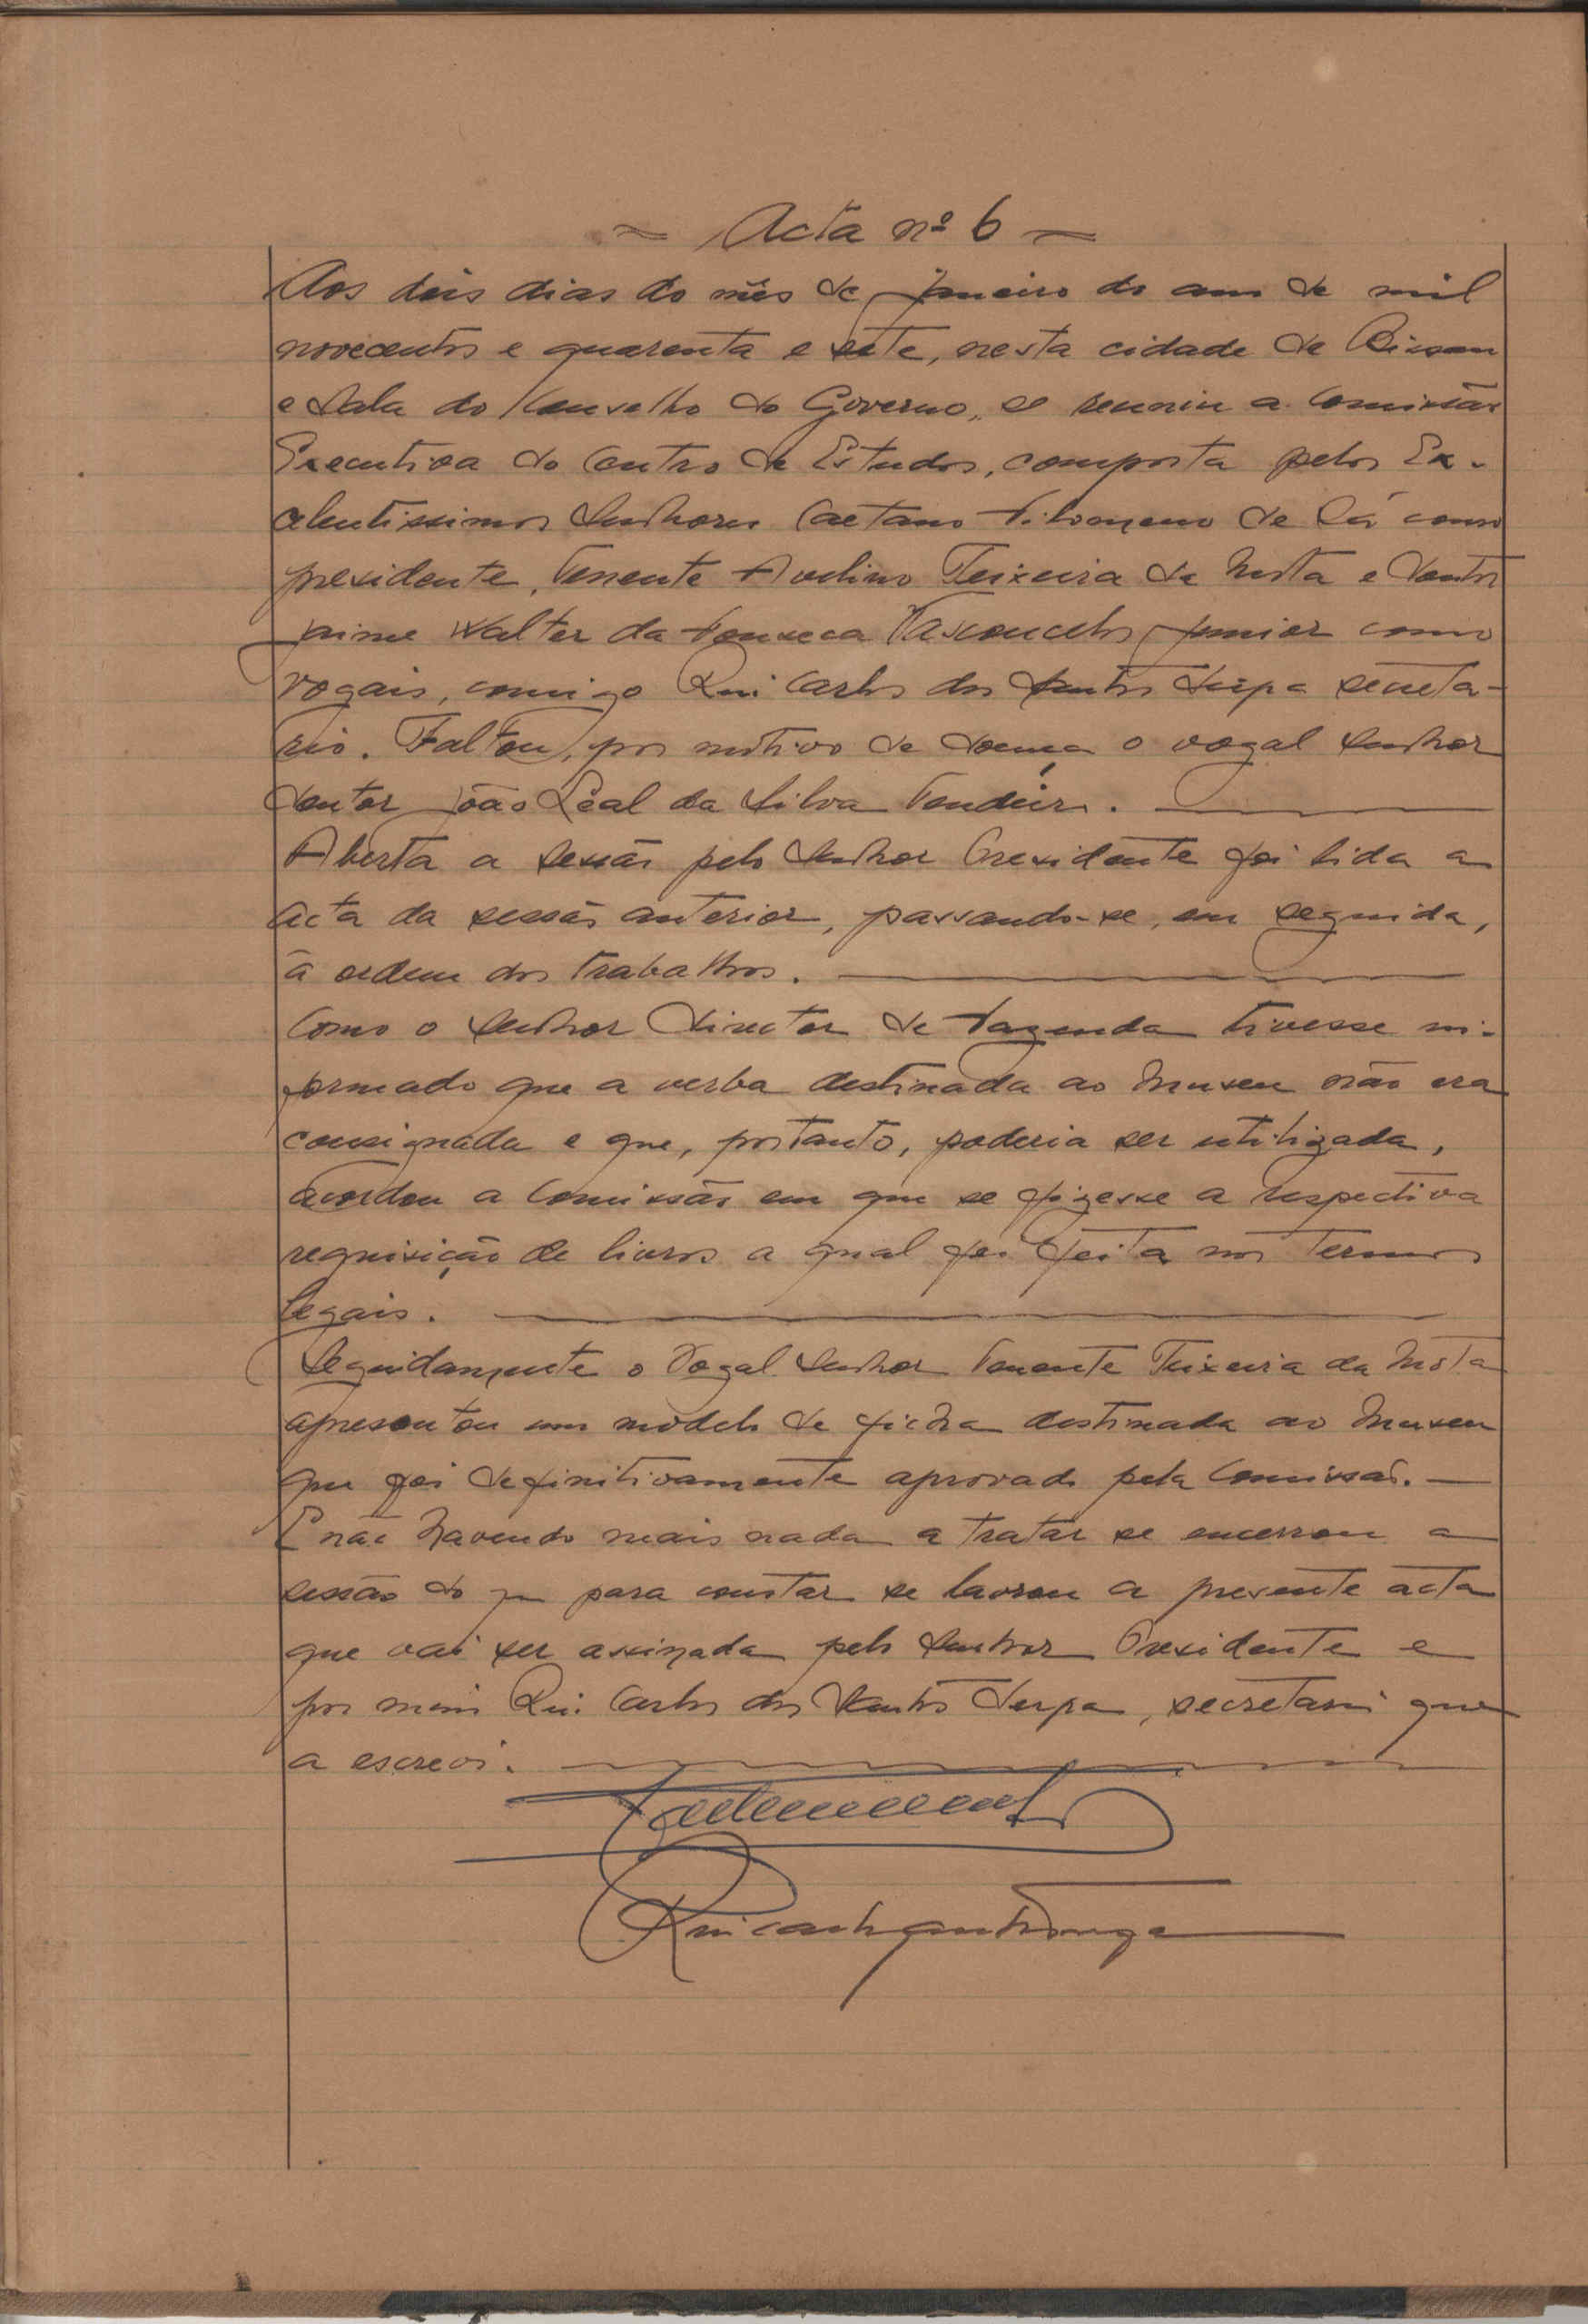 = Acta nº 6 =
Aos dois dias do mês de Janeiro do ano de mil
novecentos e quarenta e sete, nesta cidade de Bissau
e Sala do Conselho do Governo, se reuniu a Comissão
Executiva do Centro de Estudos, composta pelos Ex-
celentissimos Senhores Caetano Filomeno de Sá como
presidente, Tenente Avelino Teixeira da Mota e Doutor
Jaime Walter da Fonseca Vasconcelos Junior como
vogais, comigo Rui Carlos dos Santos Serpa secretá-
rio. Faltou, por motivo de doença o vogal Senhor
Doutor João Leal da Silva Tendeiro.
Aberta a sessão pelo Senhor Presidente foi lida a
acta da sessão anterior, passando-se, em seguida,
à ordem dos trabalhos.
Como o Senhor Director de Fazenda tivesse in-
formado que a verba destinada ao Museu não era
consignada e que, portanto, poderia ser utilizada,
acordou a Comissão em que se fizesse a respectiva
requisição de livros a qual foi feita nos termos
legais.
Seguidamente o Vogal Senhor Tenente Teixeira da Mota
apresentou um modelo de ficha destinada ao Museu
que foi definitivamente aprovado pela Comissão.
E não havendo mais nada a tratar se encerrou a
sessão do que para constar se lavrou a presente acta
que vai ser assinada pelo Senhor Presidente e
por mim Rui Carlos dos Santos Serpa, secretário que
a escrevi.